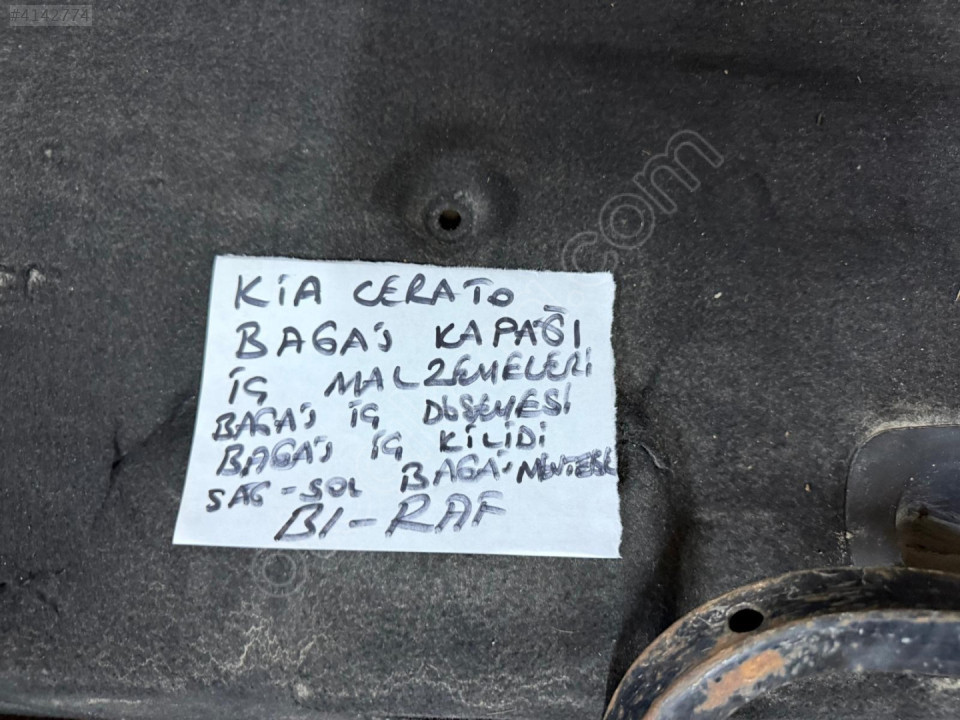 #4142774
KİA CERATO
BAGAJ KAPAĞI
İÇ MALZEMELERİ
BAGAJ İÇ DÖŞEMESİ
BAGAJ İÇ KİLİDİ
SAĞ-SOL BAGAJ MENTEŞE
BI-RAF
.com